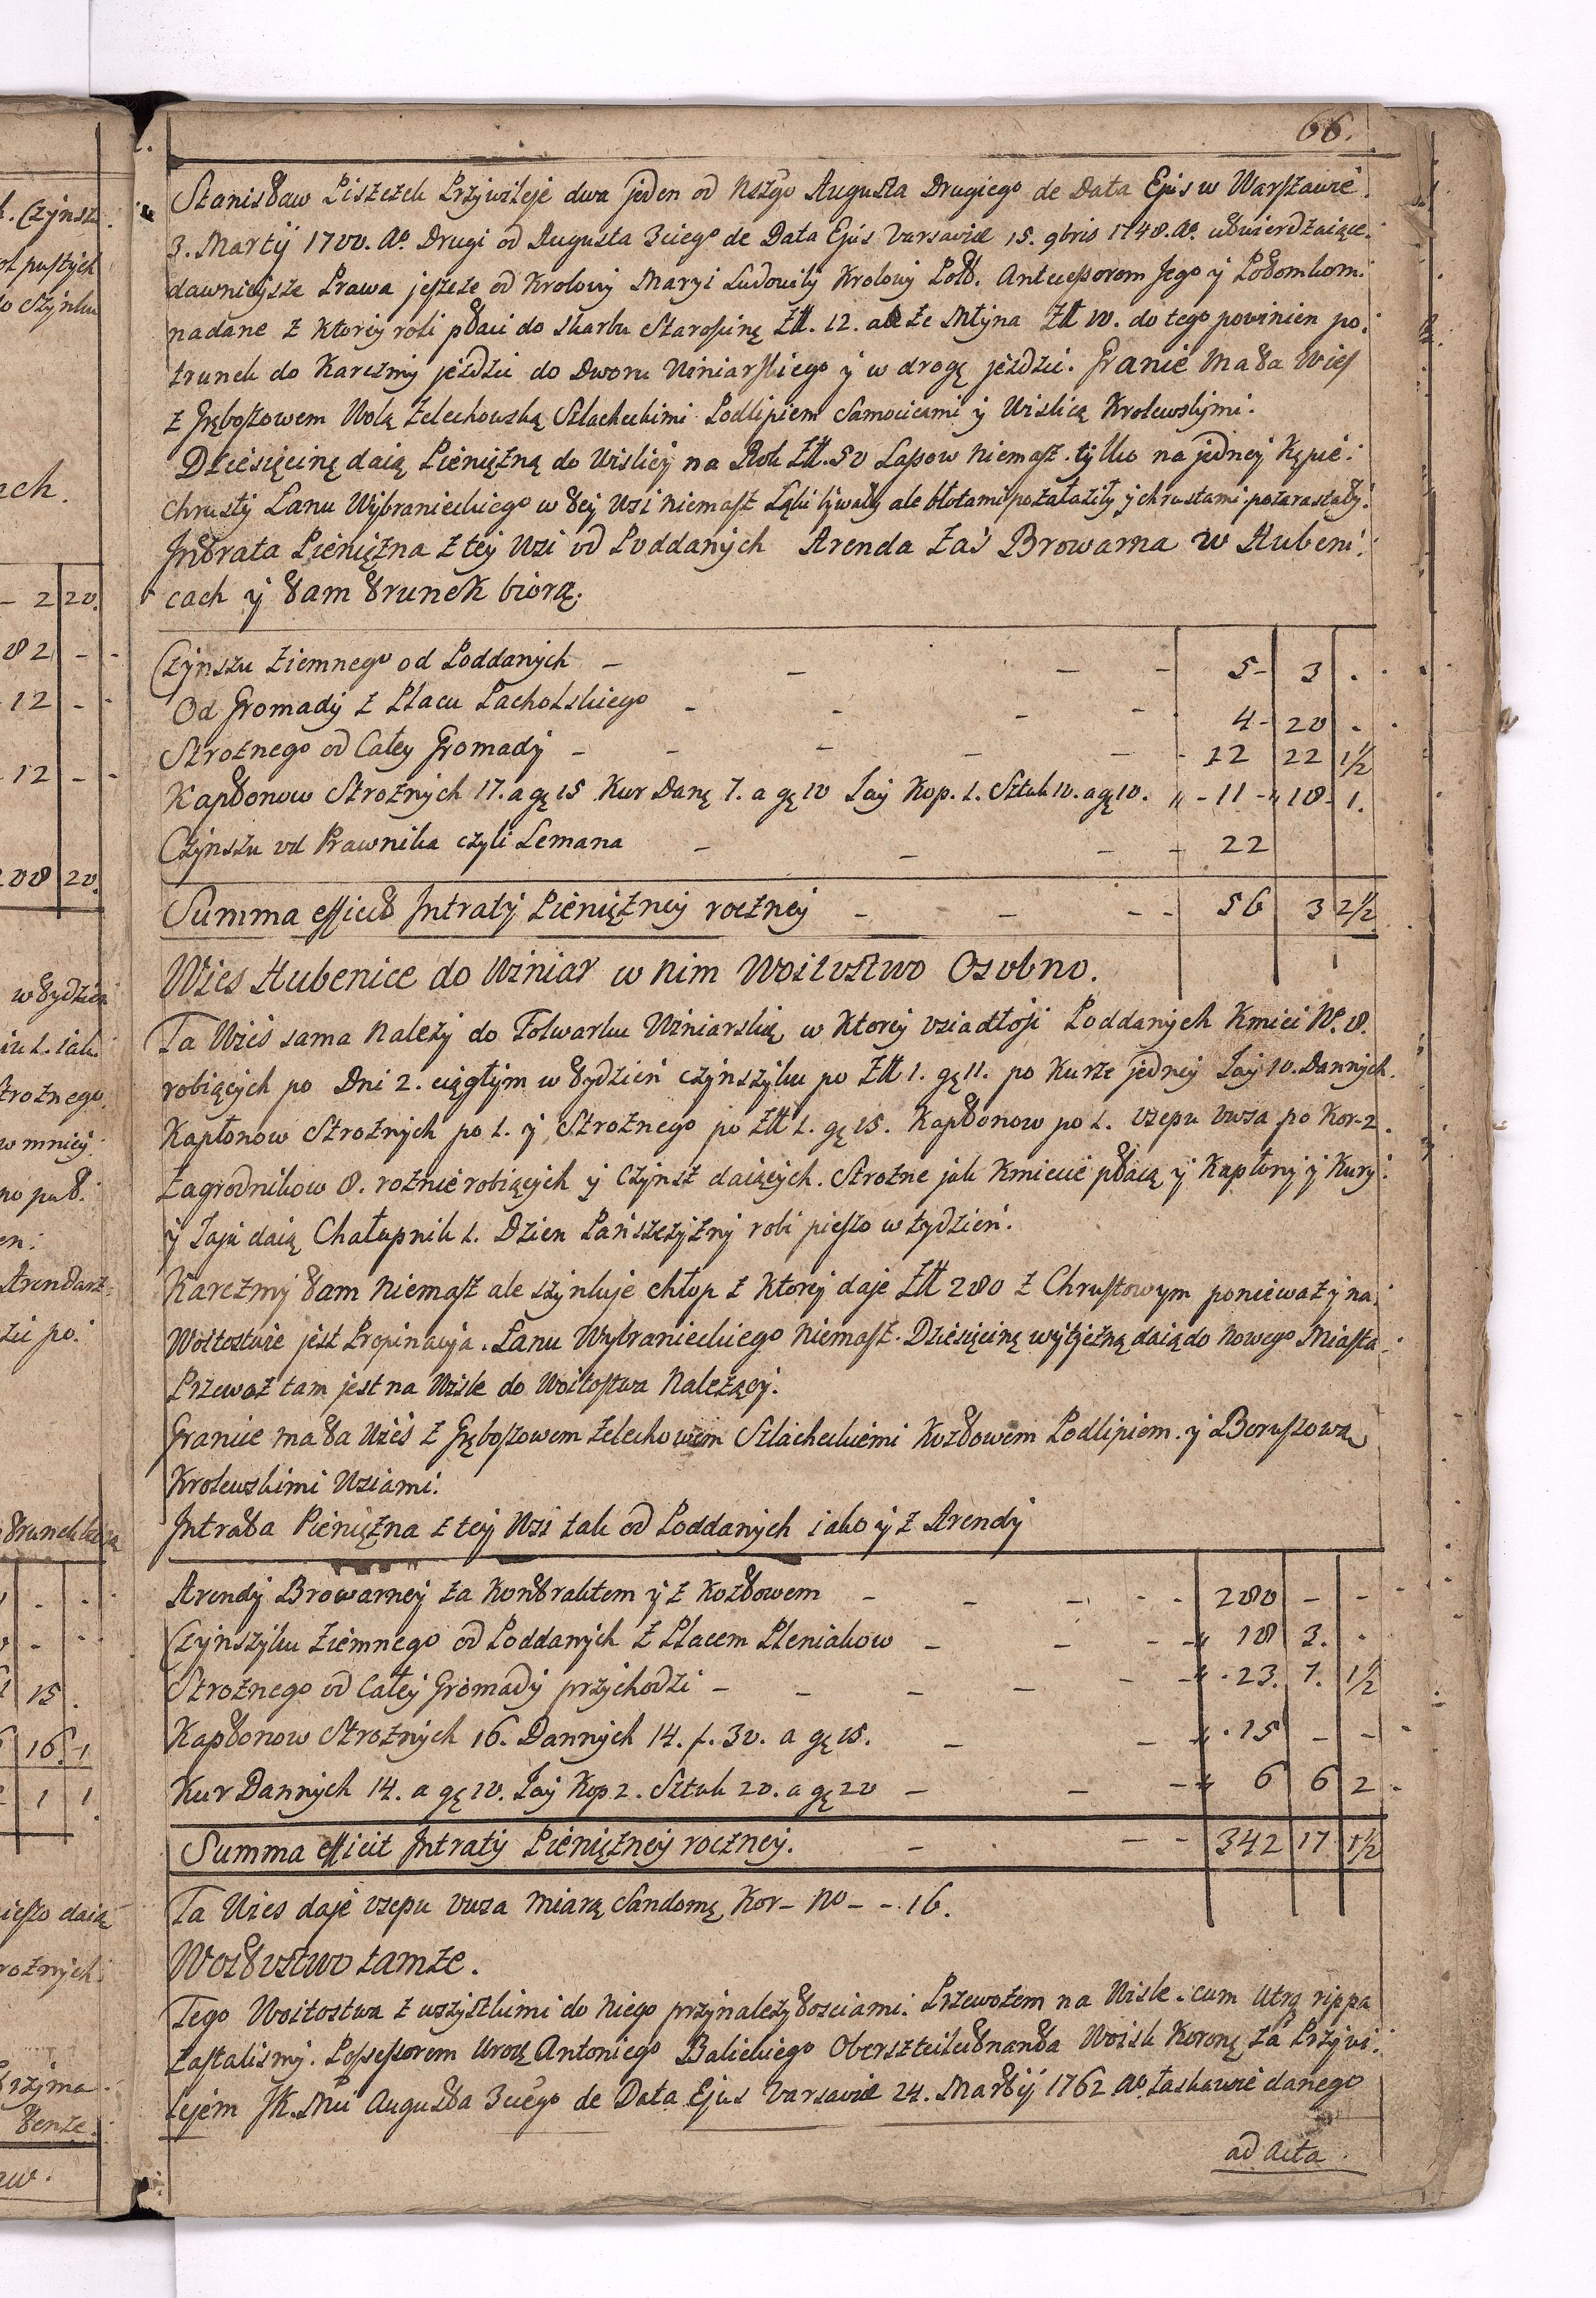 66.
Stanisław Piszczek Przywileje dwa jeden od Nszgo Augusta Drugiego de Data Ejus w Warszawie
3. Martij 1700. Ao. Drugi od Augusta 3ciego de Data Ejus Varsaviæ 15. 9bris 1748. Ao. utwierdzaiące
dawniejsze Prawa jeszcze od Krolowy Maryi Ludowiki Krolowy Pol. Antecessorom Jego y Potomkom
nadane z ktorey roli płaci do skarbu Starościnę Złł. 12. a ze Młyna Złł 10. do tego powinien po:
trunek do Karczmy jezdzic do Dworu Winiarskiego y w drogę jezdzic. Granie ma ta Wies
z Gręboszowem Wolą Zelechowską Szlacheckimi Podlipiem Samocicami y Wislicą Krolewskymi.
Dziesięcinę daią Pieniężną do Wislicy na Rok Złł. 50 Lasow niemasz. tylko na jedney Kępie:
chrusty Lanu Wybranieckiego w tey Wsi niemasz Łąki bywały ale błotami pozałaziły y chrustami pozarastały.
Intrata Pieniężna z tey Wsi od Poddanych Arenda zaś Browarna w Hubeni:
cach y tam trunek biorą.
Czynszu Ziemnego od Poddanych – – – – 5 – 3 .
Od Gromady z Placu Pacholskiego – – – – 4 – 20 .
Strożnego od Całey Gromady – – – – – 12 22 1½
Kapłonow Strożnych 17. a gę 15 Kur Danę 7. a gę 10 Jay Kop. 1. Sztuk 10. a gę 10. – 11 – 18 – 1.
Czynszu od Prawnika czyli Lemana – – – – 22
Summa efficit Intraty Pieniężney roczney – – – – 56 3 2½
Wies Hubenice do Winiar w nim Woitostwo Osobno.
Ta Wieś sama Należy do Folwarku Winiarskię w Ktorey osiadłoji Poddanych Kmieci No. 8.
robiących po Dni 2. ciągłym w tydzień czynszyku po Złł 1. gę 11. po Kurze jedney Jay 10. Dannych.
Kapłonow Strożnych po 1. y Strożnego po Złł 1. gę 15. Kapłonow po 1. osepu owsa po Kor – 2.
Zagrodnikow 8. roznie robiących y Czynsz daiących. Strozne jak Kmiecie płacą y Kapłony y Kury
y Jaja daią Chałupnik 1. Dzien Pańszczyzny robi pieszo w tydzień.
Karczmy tam niemasz ale szynkuje chłop z Ktorey daje Złł 280 z Chrustowym ponieważ y na
Woitostwie jest Propinacyja. Lanu Wybranieckiego niemasz. Dziesięcinę wytyczną daią do Nowego Miasta
Przewoz tam jest na Wisle do Woitostwa Należący.
Granice ma ta Wieś z Gręboszowem Zelechowem Szlacheckiemi Kozłowem Podlipiem y Boruszową
Krolewskimi Wsiami.
Intrata Pieniężna z tey Wsi tak od Poddanych iako y z Arendy
Arendy Browarney za Kontraktem y z Kozłowem – – – – – 280 – –
Czynszyku Ziemnego od Poddanych z Placem Pleniakow – – – – 18 3. .
Strożnego od Całey Gromady przychodzi – – – – – – 23. 7. 1½
Kapłonow Strożnych 16. Dannych 14. f. 30. a gę 15. – – 15 – –
Kur Dannych 14. a gę 10. Jay Kop 2. Sztuk 20. a gę 20 – – – 6 6 2
Summa efficit Intraty Pieniężney roczney. – – – 342 17 1½
Ta Wies daje osepu owsa miarą Sandomę Kor – No – – 16.
Woitostwo tamże.
Tego Woitostwa z wszystkimi do niego przynależytosciami. Przewozem na Wisle cum utrą rippa
zastalismy. Possessorem Urodę Antoniego Balickiego Oberszteileutnanta Woisk Koronę za Przywi:
lejem JK. Mci Augusta 3ciego de Data Ejus Varsaviæ 24. Martij 1762 Ao. łaskawie danego
ad Acta.